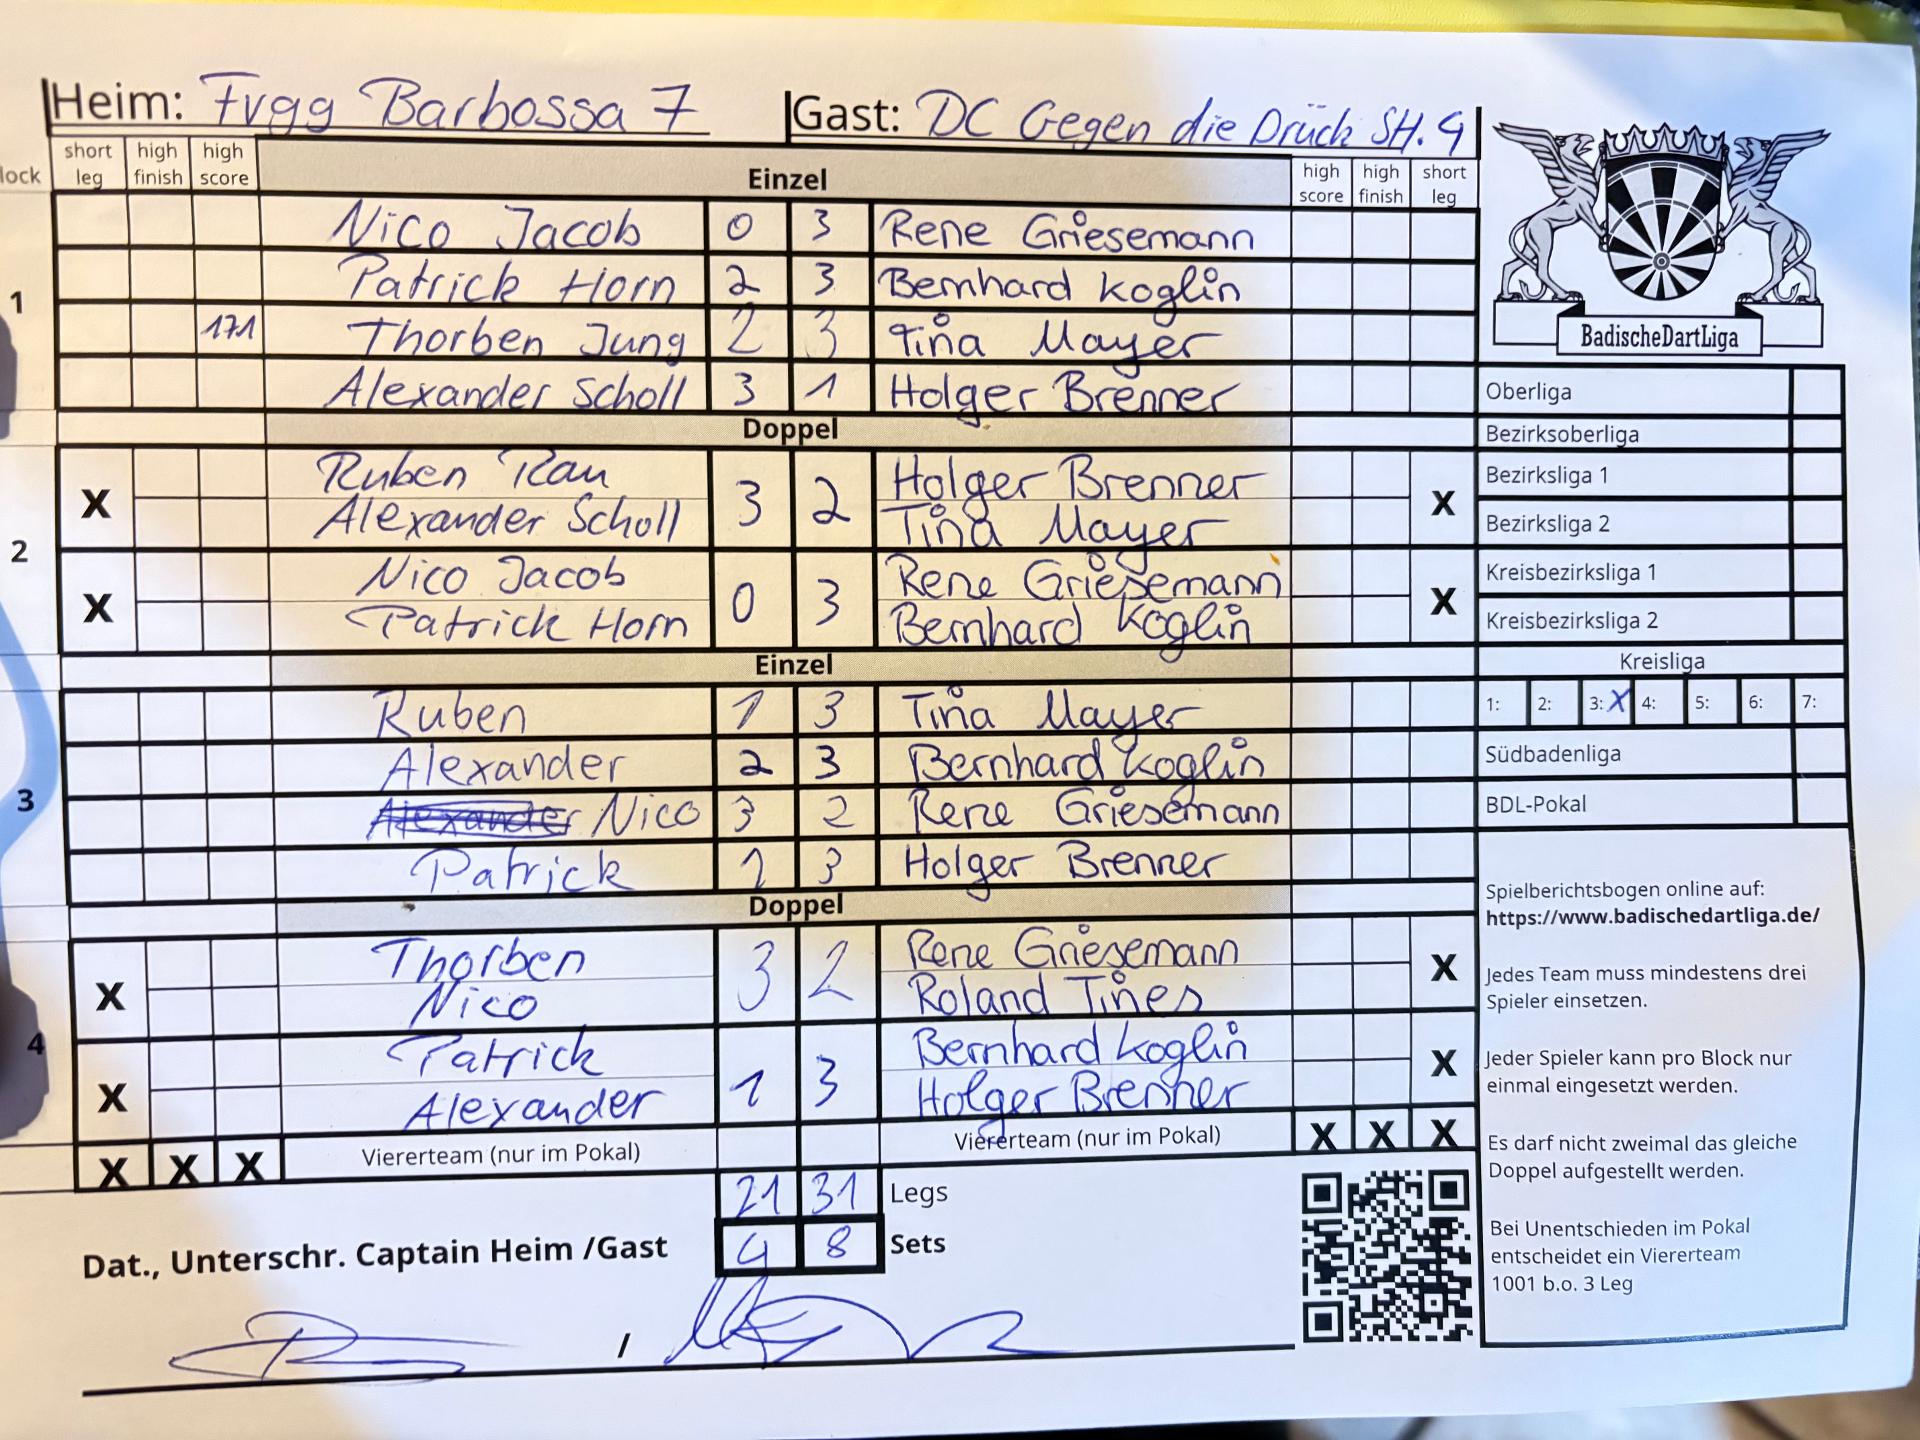 Heim: Fvgg Barbossa 7 Gast: DC Gegen die Drück SH. 4
lock short leg high finish high score Einzel high score high finish short leg
1
Nico Jacob 0 3 Rene Griesemann
Patrick Horn 2 3 Bernhard Koglin
171 Thorben Jung 2 3 Tina Mayer
Alexander Scholl 3 1 Holger Brenner
Doppel
2
X Ruben Rau 3 2 Holger Brenner X
Alexander Scholl Tina Mayer
X Nico Jacob 0 3 Rene Griesemann X
Patrick Horn Bernhard Koglin
Einzel
3
Ruben 1 3 Tina Mayer
Alexander 2 3 Bernhard Koglin
Alexander Nico 3 2 Rene Griesemann
Patrick 1 3 Holger Brenner
Doppel
4
X Thorben 3 2 Rene Griesemann X
Nico Roland Tines
X Patrick 1 3 Bernhard Koglin X
Alexander Holger Brenner
X X X Viererteam (nur im Pokal) Viererteam (nur im Pokal) X X X
21 31 Legs
4 8 Sets
Dat., Unterschr. Captain Heim /Gast
/
BadischeDartLiga
Oberliga
Bezirksoberliga
Bezirksliga 1
Bezirksliga 2
Kreisbezirksliga 1
Kreisbezirksliga 2
Kreisliga
1: 2: 3: X 4: 5: 6: 7:
Südbadenliga
BDL-Pokal
Spielberichtsbogen online auf:
https://www.badischedartliga.de/
Jedes Team muss mindestens drei
Spieler einsetzen.
Jeder Spieler kann pro Block nur
einmal eingesetzt werden.
Es darf nicht zweimal das gleiche
Doppel aufgestellt werden.
Bei Unentschieden im Pokal
entscheidet ein Viererteam
1001 b.o. 3 Leg